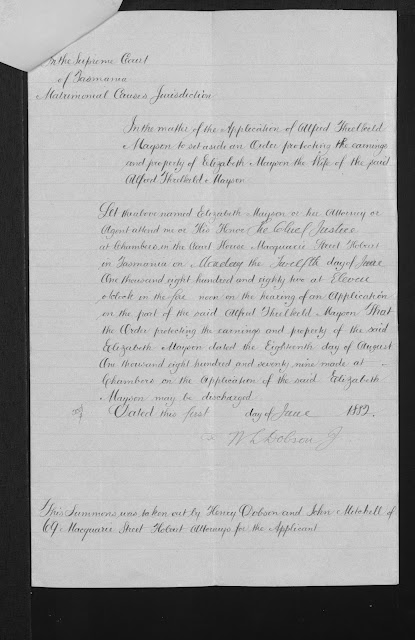 In the Supreme Court
of Tasmania
Matrimonial Causes Jurisdiction
In the matter of the Application of Alfred Threlkeld
Mayson to set aside an Order protecting the earnings
and property of Elizabeth Mayson the Wife of the said
Alfred Threlkeld Mayson
Let the above named Elizabeth Mayson or her Attorney or
Agent attend me or His Honor The Chief Justice
at Chambers in the Court House Macquarie Street Hobart
in Tasmania on Monday the Twelfth day of June
One thousand eight hundred and eighty two at Eleven
o'clock in the fore noon on the hearing of an Application
on the part of the said Alfred Threlkeld Mayson That
the Order protecting the earnings and property of the said
Elizabeth Mayson dated the Eighteenth day of August
One thousand eight hundred and seventy nine made at
Chambers on the Application of the said Elizabeth
Mayson may be discharged
Dated this first day of June 1882.
W L Dobson J.
This Summons was taken out by Henry Dobson and John Mitchell of
69 Macquarie Street Hobart Attorneys for the Applicant